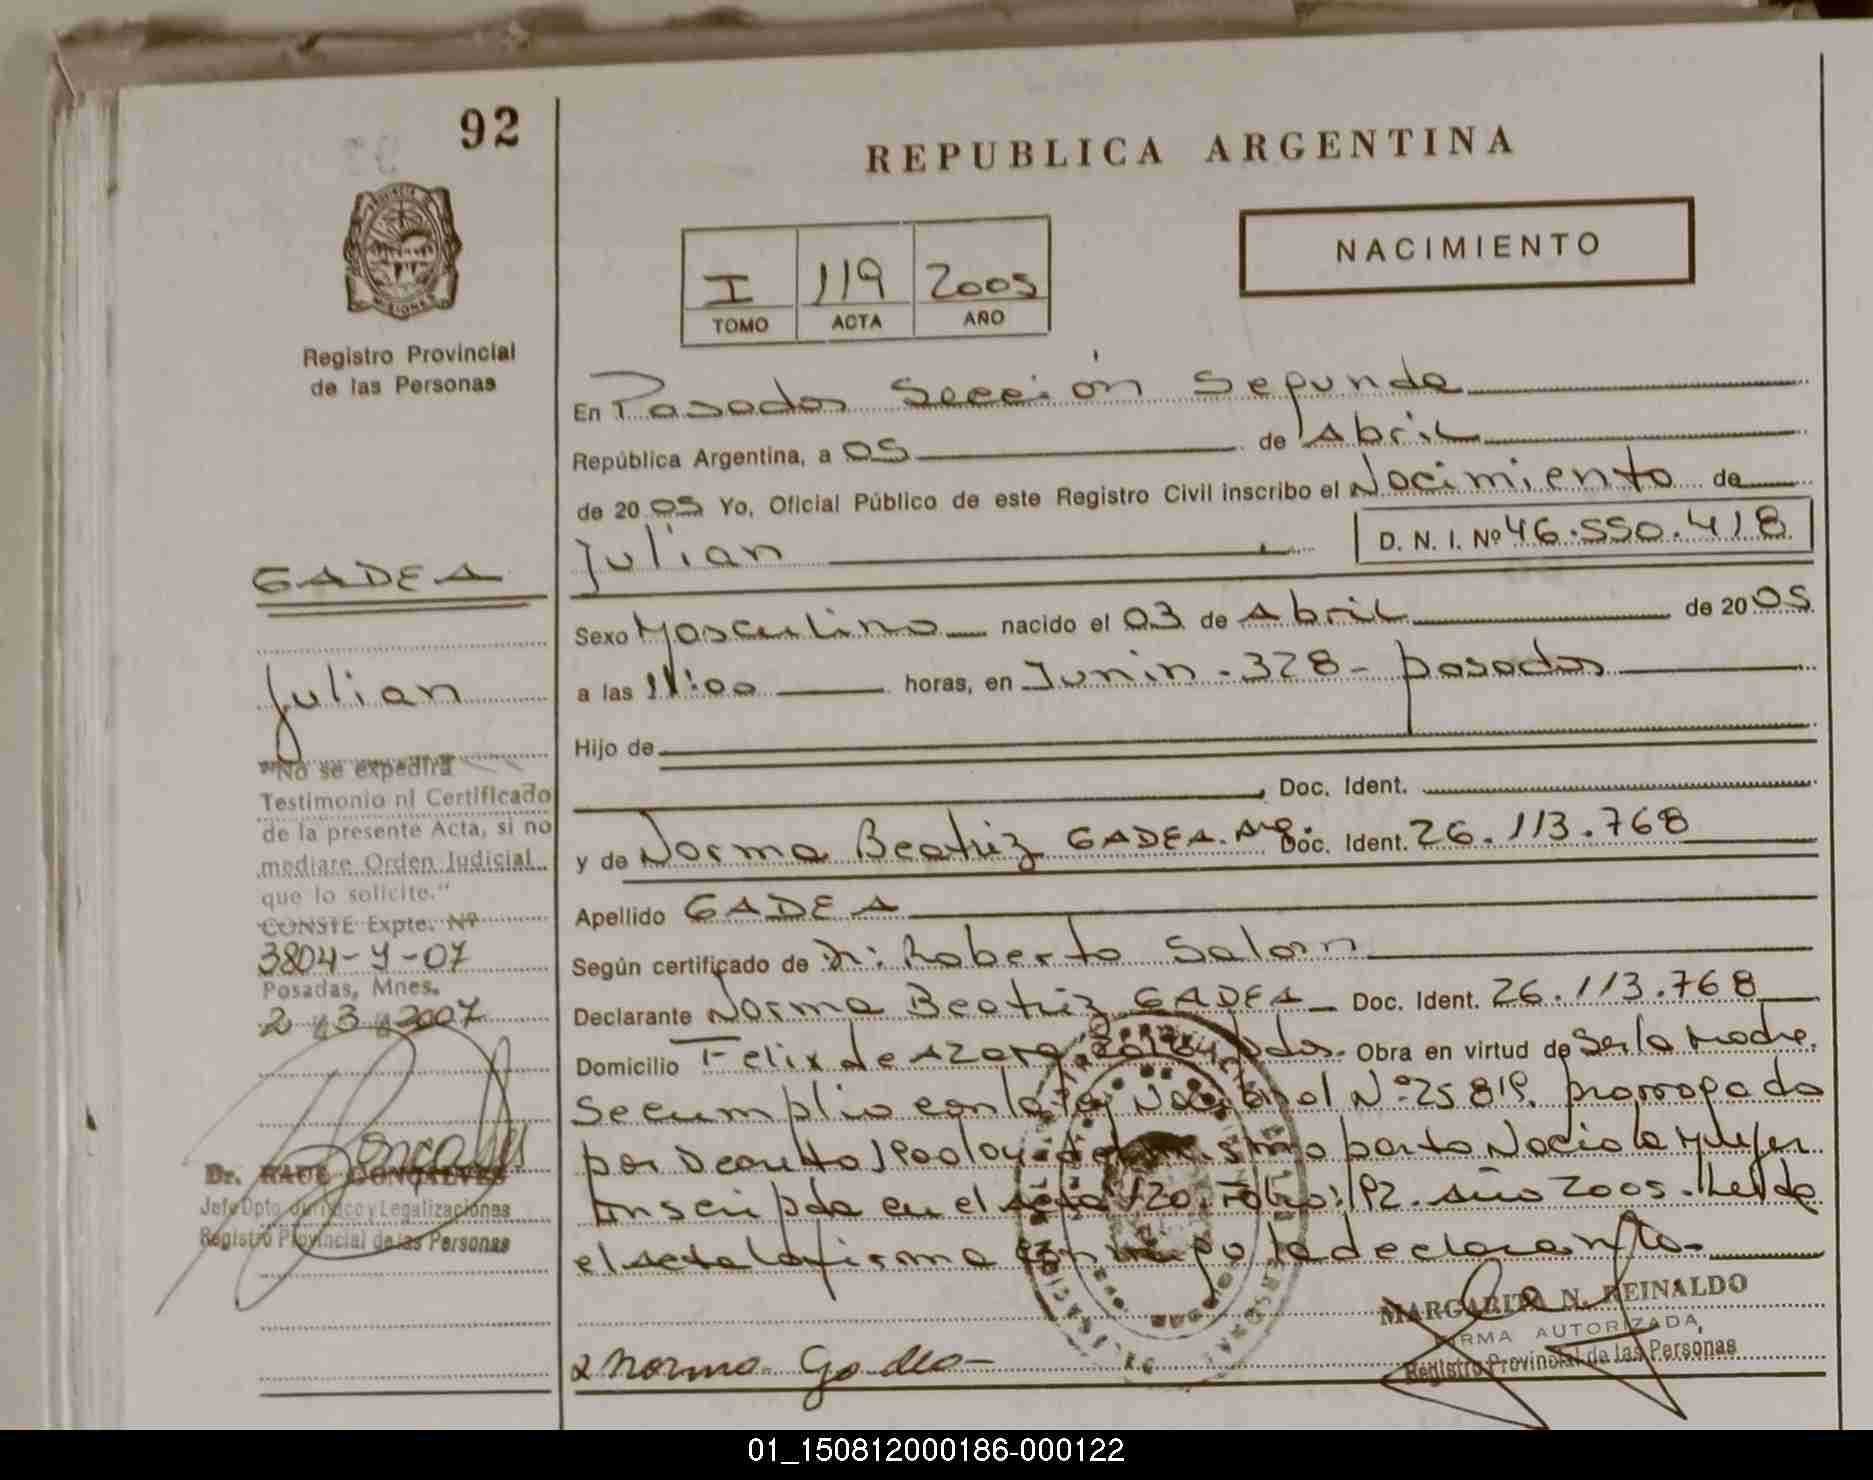 92
REPUBLICA ARGENTINA
NACIMIENTO
I 119 2005
TOMO ACTA AÑO
PROVINCIA
MISIONES
Registro Provincial
de las Personas
En Posadas Sección Segunda
República Argentina, a 05 de Abril
de 2005 Yo, Oficial Público de este Registro Civil inscribo el Nacimiento de
Julian D. N. I. Nº 46.550.418
GADEA
Sexo Masculino nacido el 03 de Abril de 2005
Julian
a las 11:00 horas, en Junin - 328 - posadas
Hijo de
"No se expedirá
Testimonio ni Certificado
de la presente Acta, si no
mediare Orden Judicial
que lo solicite."
CONSTE Expte. Nº
3804-Y-07
Posadas, Mnes.
2 / 3 / 2007
Doc. Ident.
y de Norma Beatriz GADEA. Arg. Doc. Ident. 26.113.768
Apellido GADEA
Según certificado de Dr: Roberto Salom
Declarante Norma Beatriz GADEA Doc. Ident. 26.113.768
Domicilio Felix de Azara Pdas. Obra en virtud de Ser la Madre.
Se cumplio con la Ley Nacional Nº 25819. prorrogada
por Decreto 1900/04 del mismo parto Nacio la Mujer
Inscripta en el acta 120. Folio: 192. año 2005. Leida
el acta la firma conmigo la declarante.
Goncalves
Dr. RAUL GONCALVES
Jefe Dpto. Jurídico y Legalizaciones
Registro Provincial de las Personas
MARGARITA N. REINALDO
FIRMA AUTORIZADA
Registro Provincial de las Personas
Norma Gadea
01_150812000186-000122